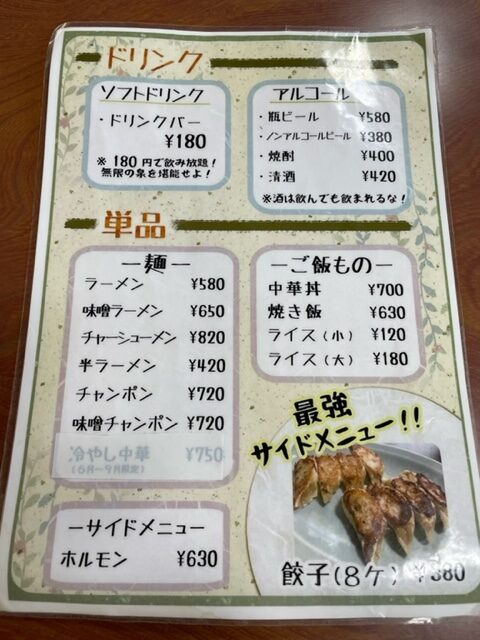 ドリンク
ソフトドリンク
・ドリンクバー
¥180
※180円で飲み放題！
無限の泉を堪能せよ！
アルコール
・瓶ビール ¥580
・ノンアルコールビール ¥380
・焼酎 ¥400
・清酒 ¥420
※酒は飲んでも飲まれるな！
単品
ー麺ー
ラーメン ¥580
味噌ラーメン ¥650
チャーシューメン ¥820
半ラーメン ¥420
チャンポン ¥720
味噌チャンポン ¥720
冷やし中華 ¥750
(6月〜9月限定)
ーご飯ものー
中華丼 ¥700
焼き飯 ¥630
ライス(小) ¥120
ライス(大) ¥180
ーサイドメニューー
ホルモン ¥630
最強
サイドメニュー！！
餃子(8ケ) ¥380